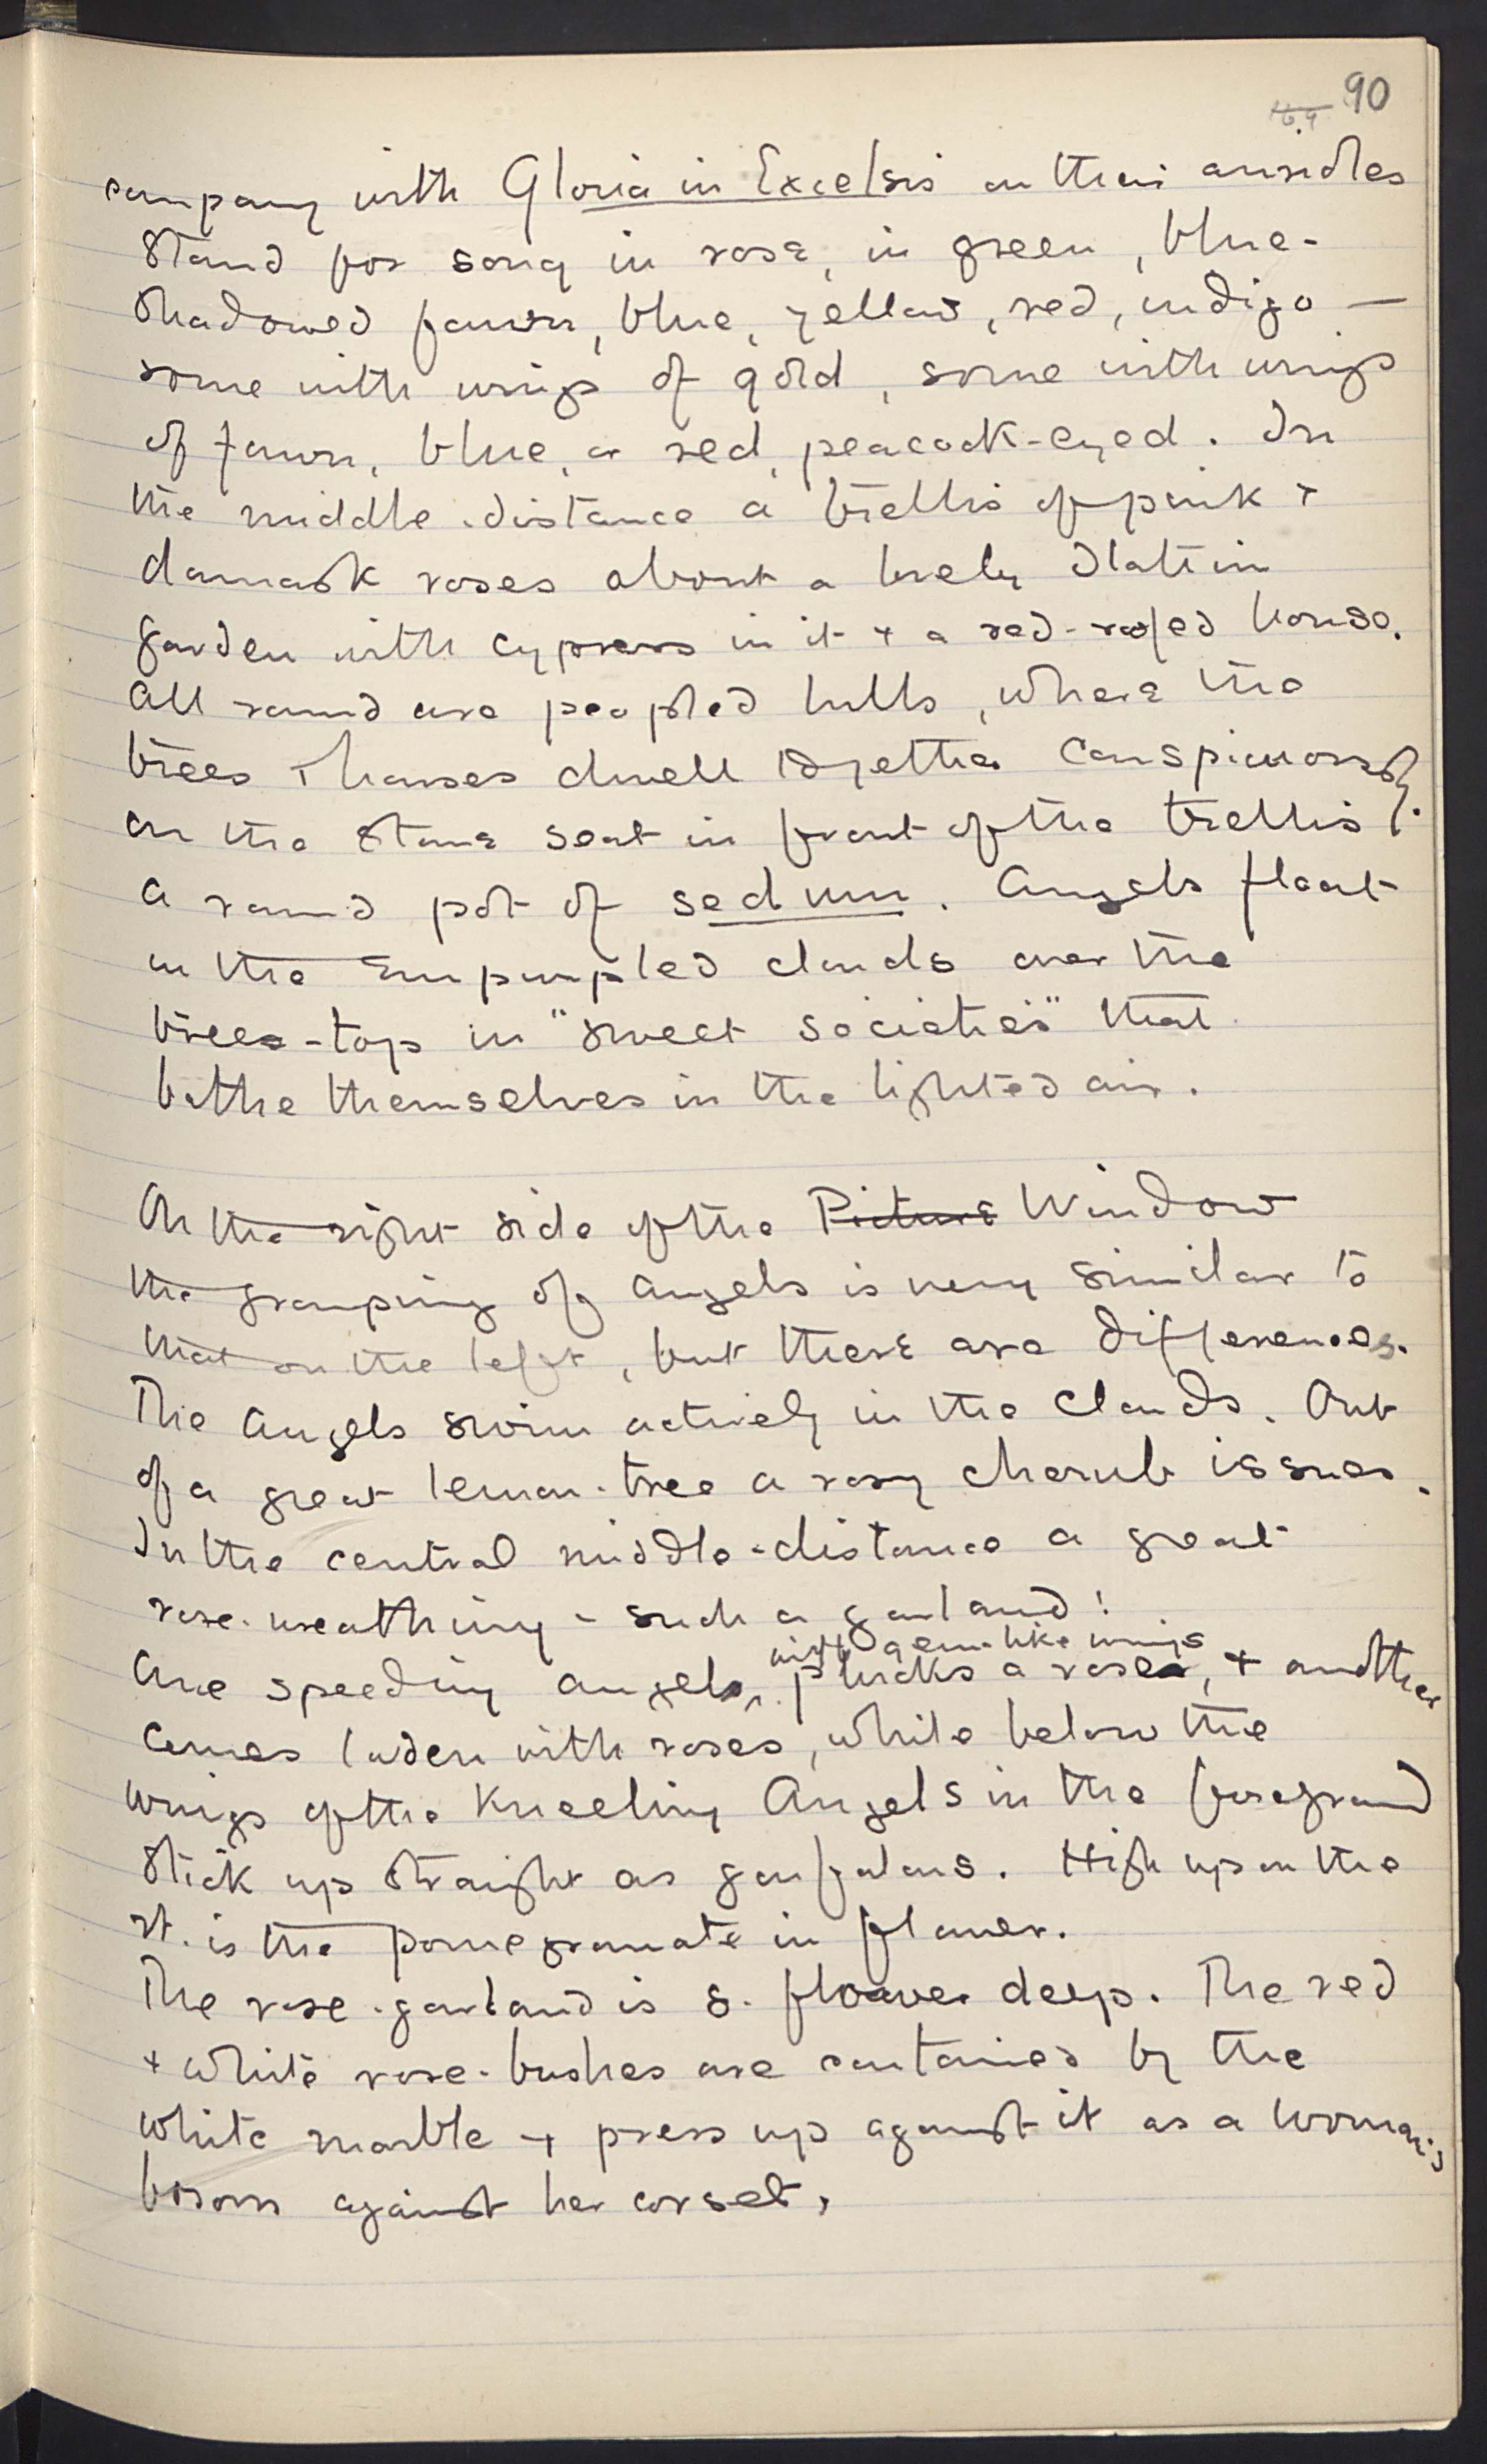 90
company with Gloria in Excelsis on their aureoles
stand for song in rose, in green, blue-
shadowed fawn, blue, yellow, red, indigo —
some with wings of gold, some with wings
of fawn, blue, or red, peacock-eyed. In
the middle-distance a trellis of pink +
damask roses about a lovely Italian
garden with cypress in it + a red-roofed house.
All round are peopled hills, where the
trees + houses dwell together conspicuously.
On the stone seat in front of the trellis
a round pot of sedum. Angels float
in the empurpled clouds over the
trees-tops in "sweet societies" that
bathe themselves in the lighted air.
On the right side of the Picture Window
the grouping of angels is very similar to
that on the left, but there are differences.
The angels swim actively in the clouds. Out
of a great lemon-tree a rosy cherub issues.
In the central middle-distance a great
rose-wreathing - such a garland!
with gem-like wings
One speeding angel plucks a rose, + another
comes laden with roses, while below the
wings of the Kneeling Angels in the foreground
stick up straight as gonfalons. High up on the
rt. is the pomegranate in flower.
The rose-garland is 8. flower deep. The red
+ white rose-bushes are contained by the
white marble + press up against it as a woman's
bosom against her corset,